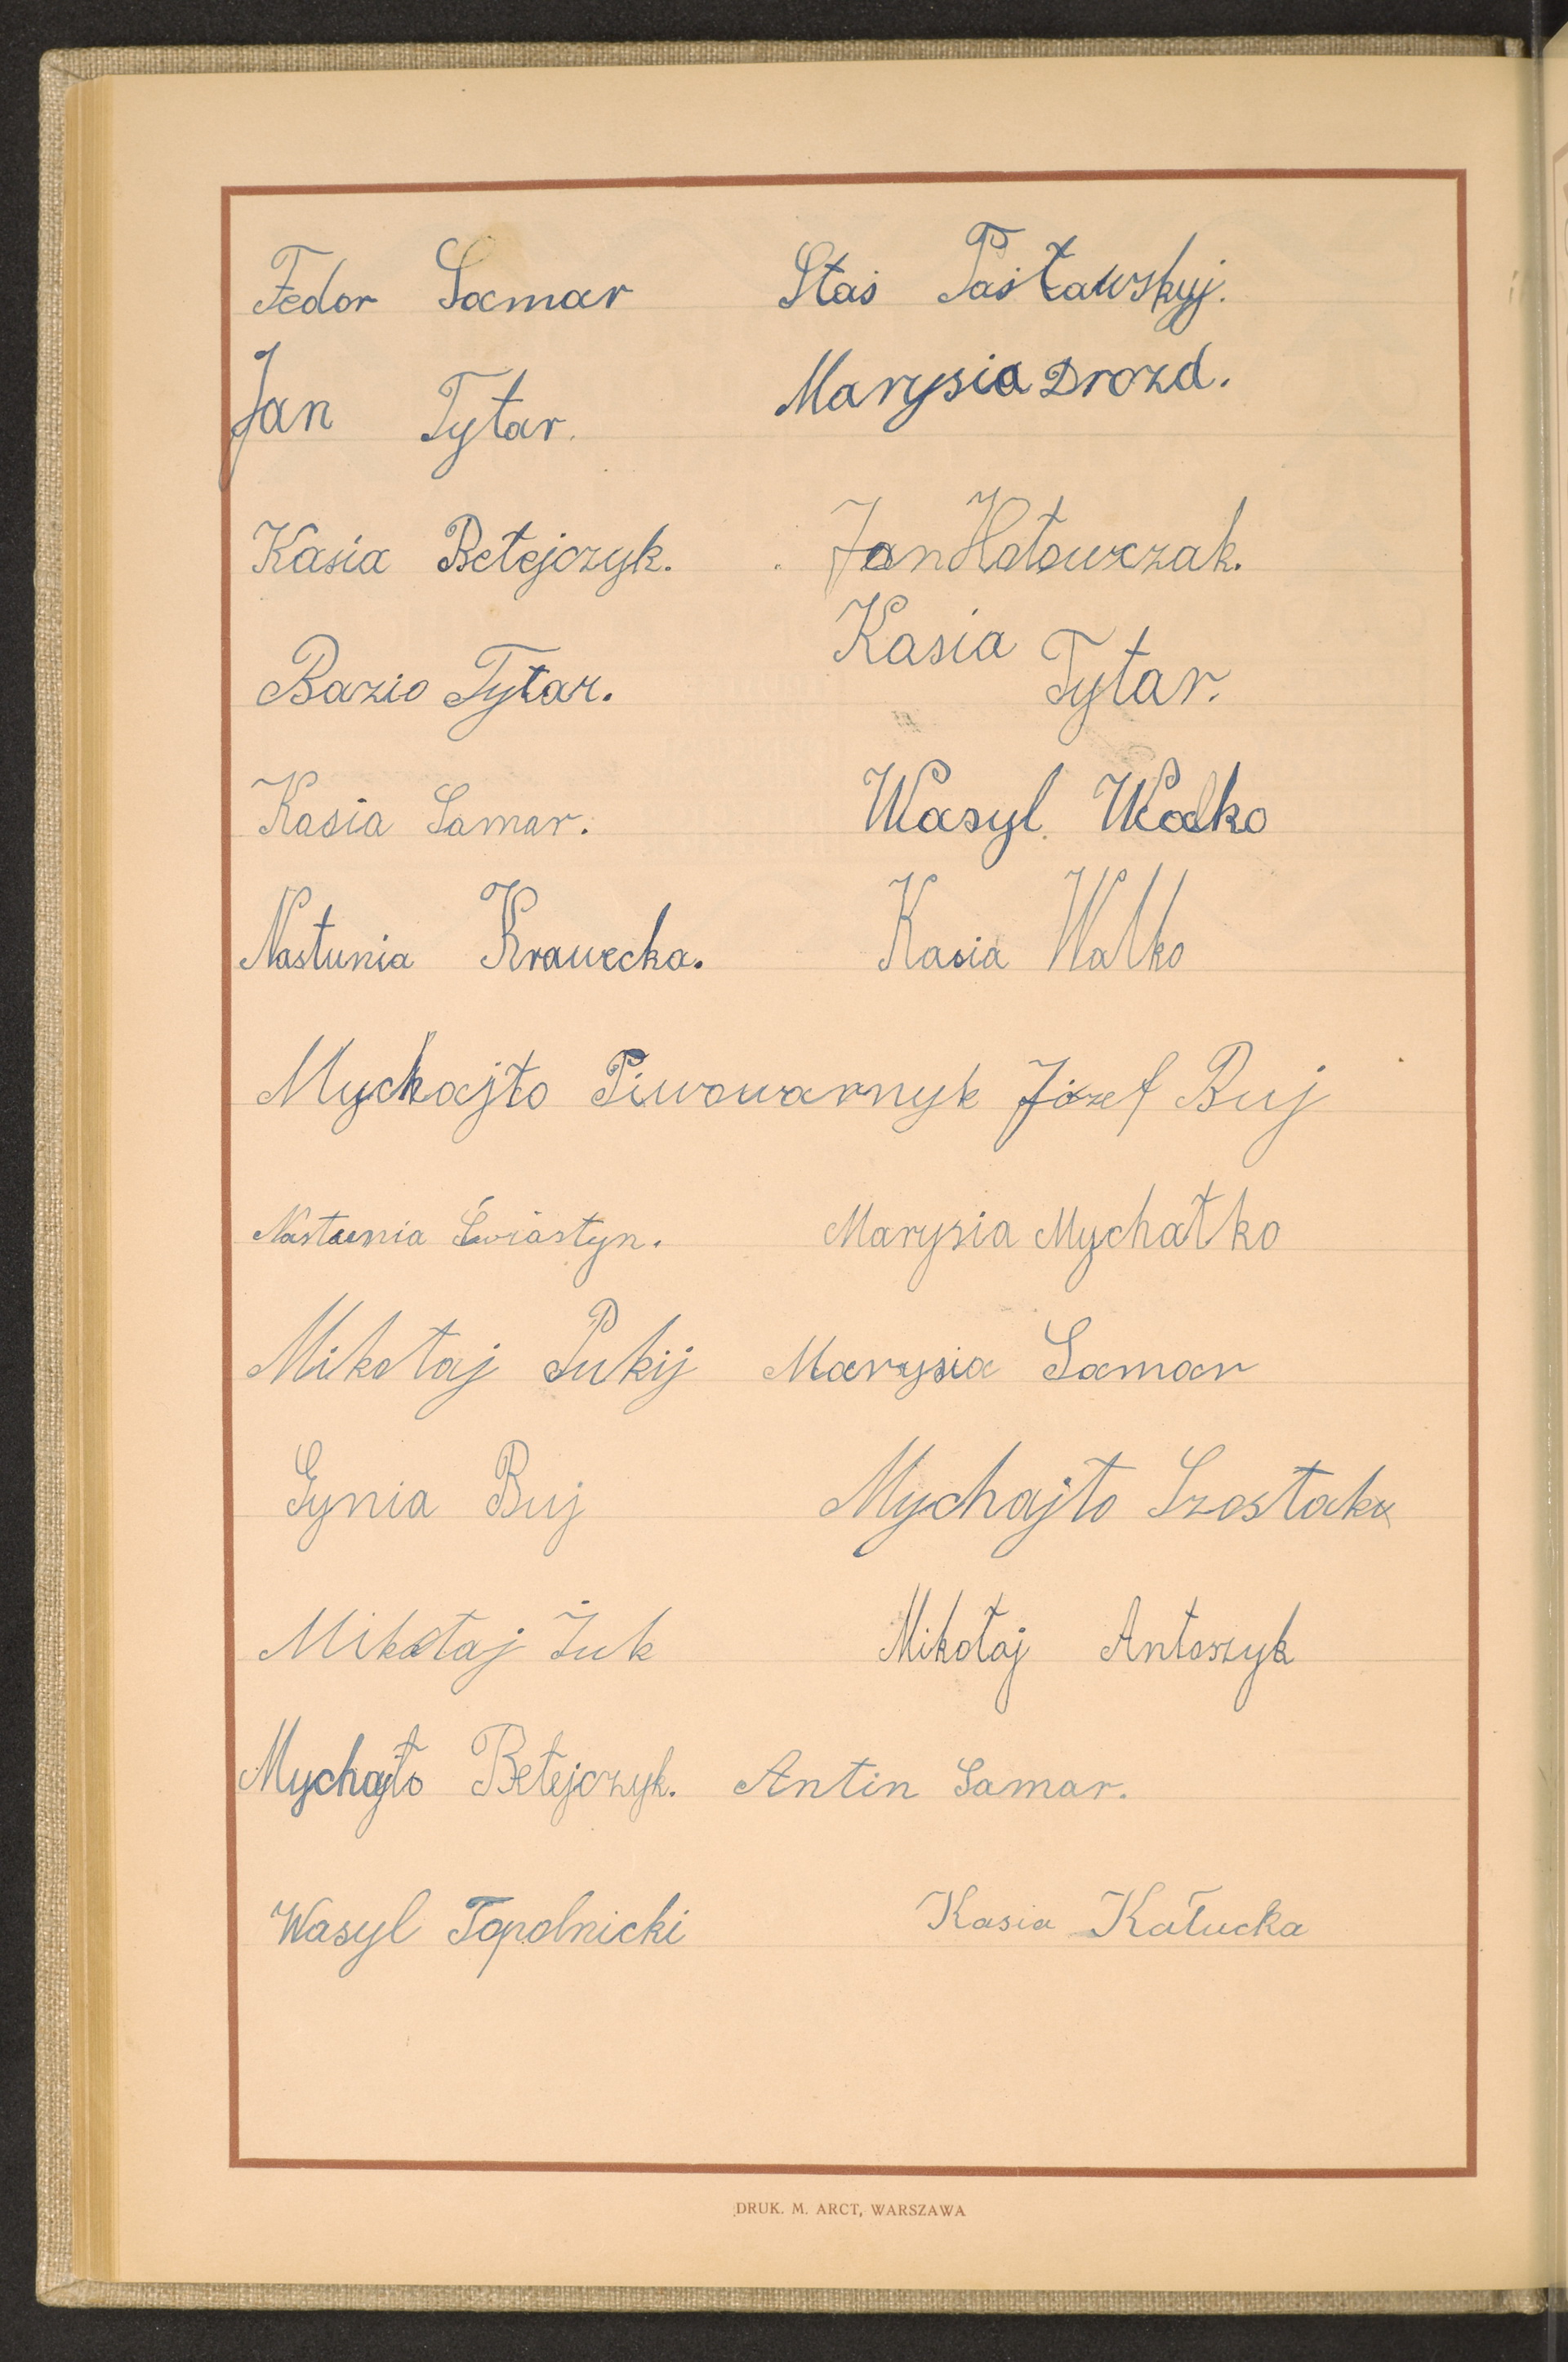 Fedor Samar Staś Pasławskyj.
Jan Tytar. Marysia Drozd.
Kasia Betejczyk. Jan Hołowczak.
Bazio Tytar. Kasia Tytar.
Kasia Samar. Wasyl Walko
Nastunia Krawecka. Kasia Walko
Mychajło Piwowarnyk Józef Buj
Nastunia Świastyn. Marysia Mychałko
Mikołaj Pukij Marysia Samar
Gynia Buj Mychajło Szostak
Mikołaj Żuk Mikołaj Antoszyk
Mychajło Betejczyk. Antin Samar.
Wasyl Topolnicki Kasia Kałucka
DRUK. M. ARCT, WARSZAWA